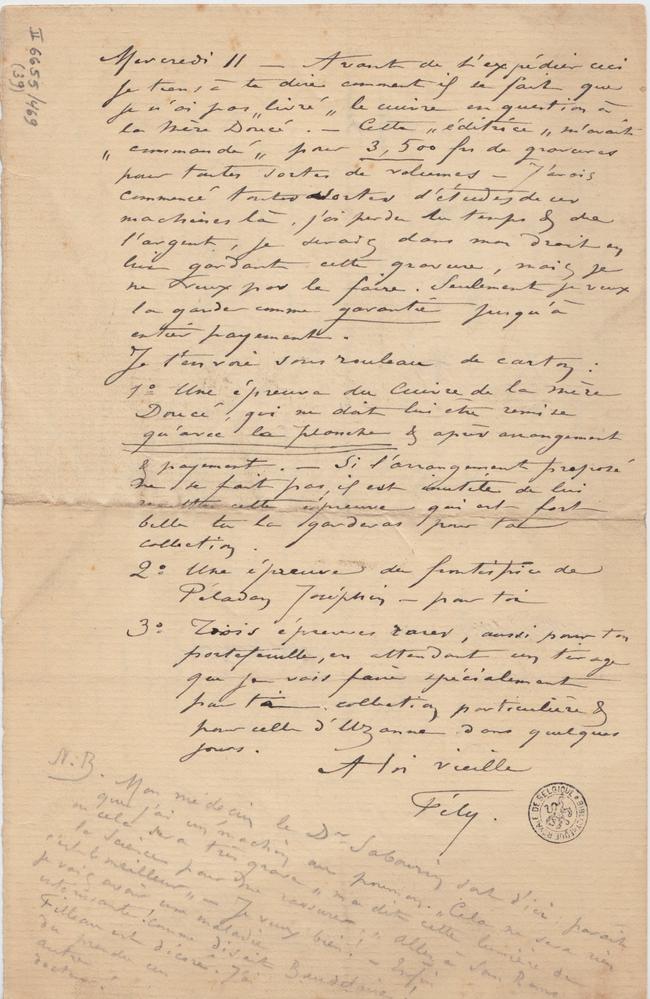 II 6655/469
(39)
Mercredi 11 — Avant de t'expédier ceci
je tiens à te dire comment il se fait que
je n'ai pas „livré„ le cuivre en question à
la Mère Doucé. — Cette „éditrice„ m'avait
„commandé„ pour 3,500 frs de gravures
pour toutes sortes de volumes — J'avais
commencé toutes sortes d'études de ces
machines là, j'ai perdu du temps & de
l'argent, je serais dans mon droit en
lui gardant cette gravure, mais je
ne veux pas le faire. Seulement je veux
la garder comme garantie jusqu'à
entier payement.
Je t'envoie sous rouleau de carton :
1º Une épreuve du Cuivre de la Mère
Doucé, qui ne doit lui être remise
qu'avec la planche & après arrangement
& payement. — Si l'arrangement proposé
ne se fait pas, il est inutile de lui
remettre cette épreuve qui est fort
belle tu la garderas pour ta
collection.
2º Une épreuve du frontispice de
Péladan Joséphin — pour toi
3º Trois épreuves rares, aussi pour ton
portefeuille, en attendant un tirage
que je vais faire spécialement
pour ta collection particulière &
pour celle d'Uzanne dans quelques
jours.
A toi vieille
Fély.
N.B. Mon médecin le Dr Sabourin sort d'ici, paraît
que j'ai un machin au poumon. "Cela ne sera rien
ou cela sera très grave" m'a dit cette lumière de
la Science pour me rassurer. "Allez à San Remo
c'est le meilleur" — Je veux bien! — Enfin
je vais avoir une maladie
intéressante! comme disait Baudelaire!
Filleau est décoré. J'ai
dû prendre un
autre
docteur.
BIBLIOTHÈQUE ROYALE DE BELGIQUE